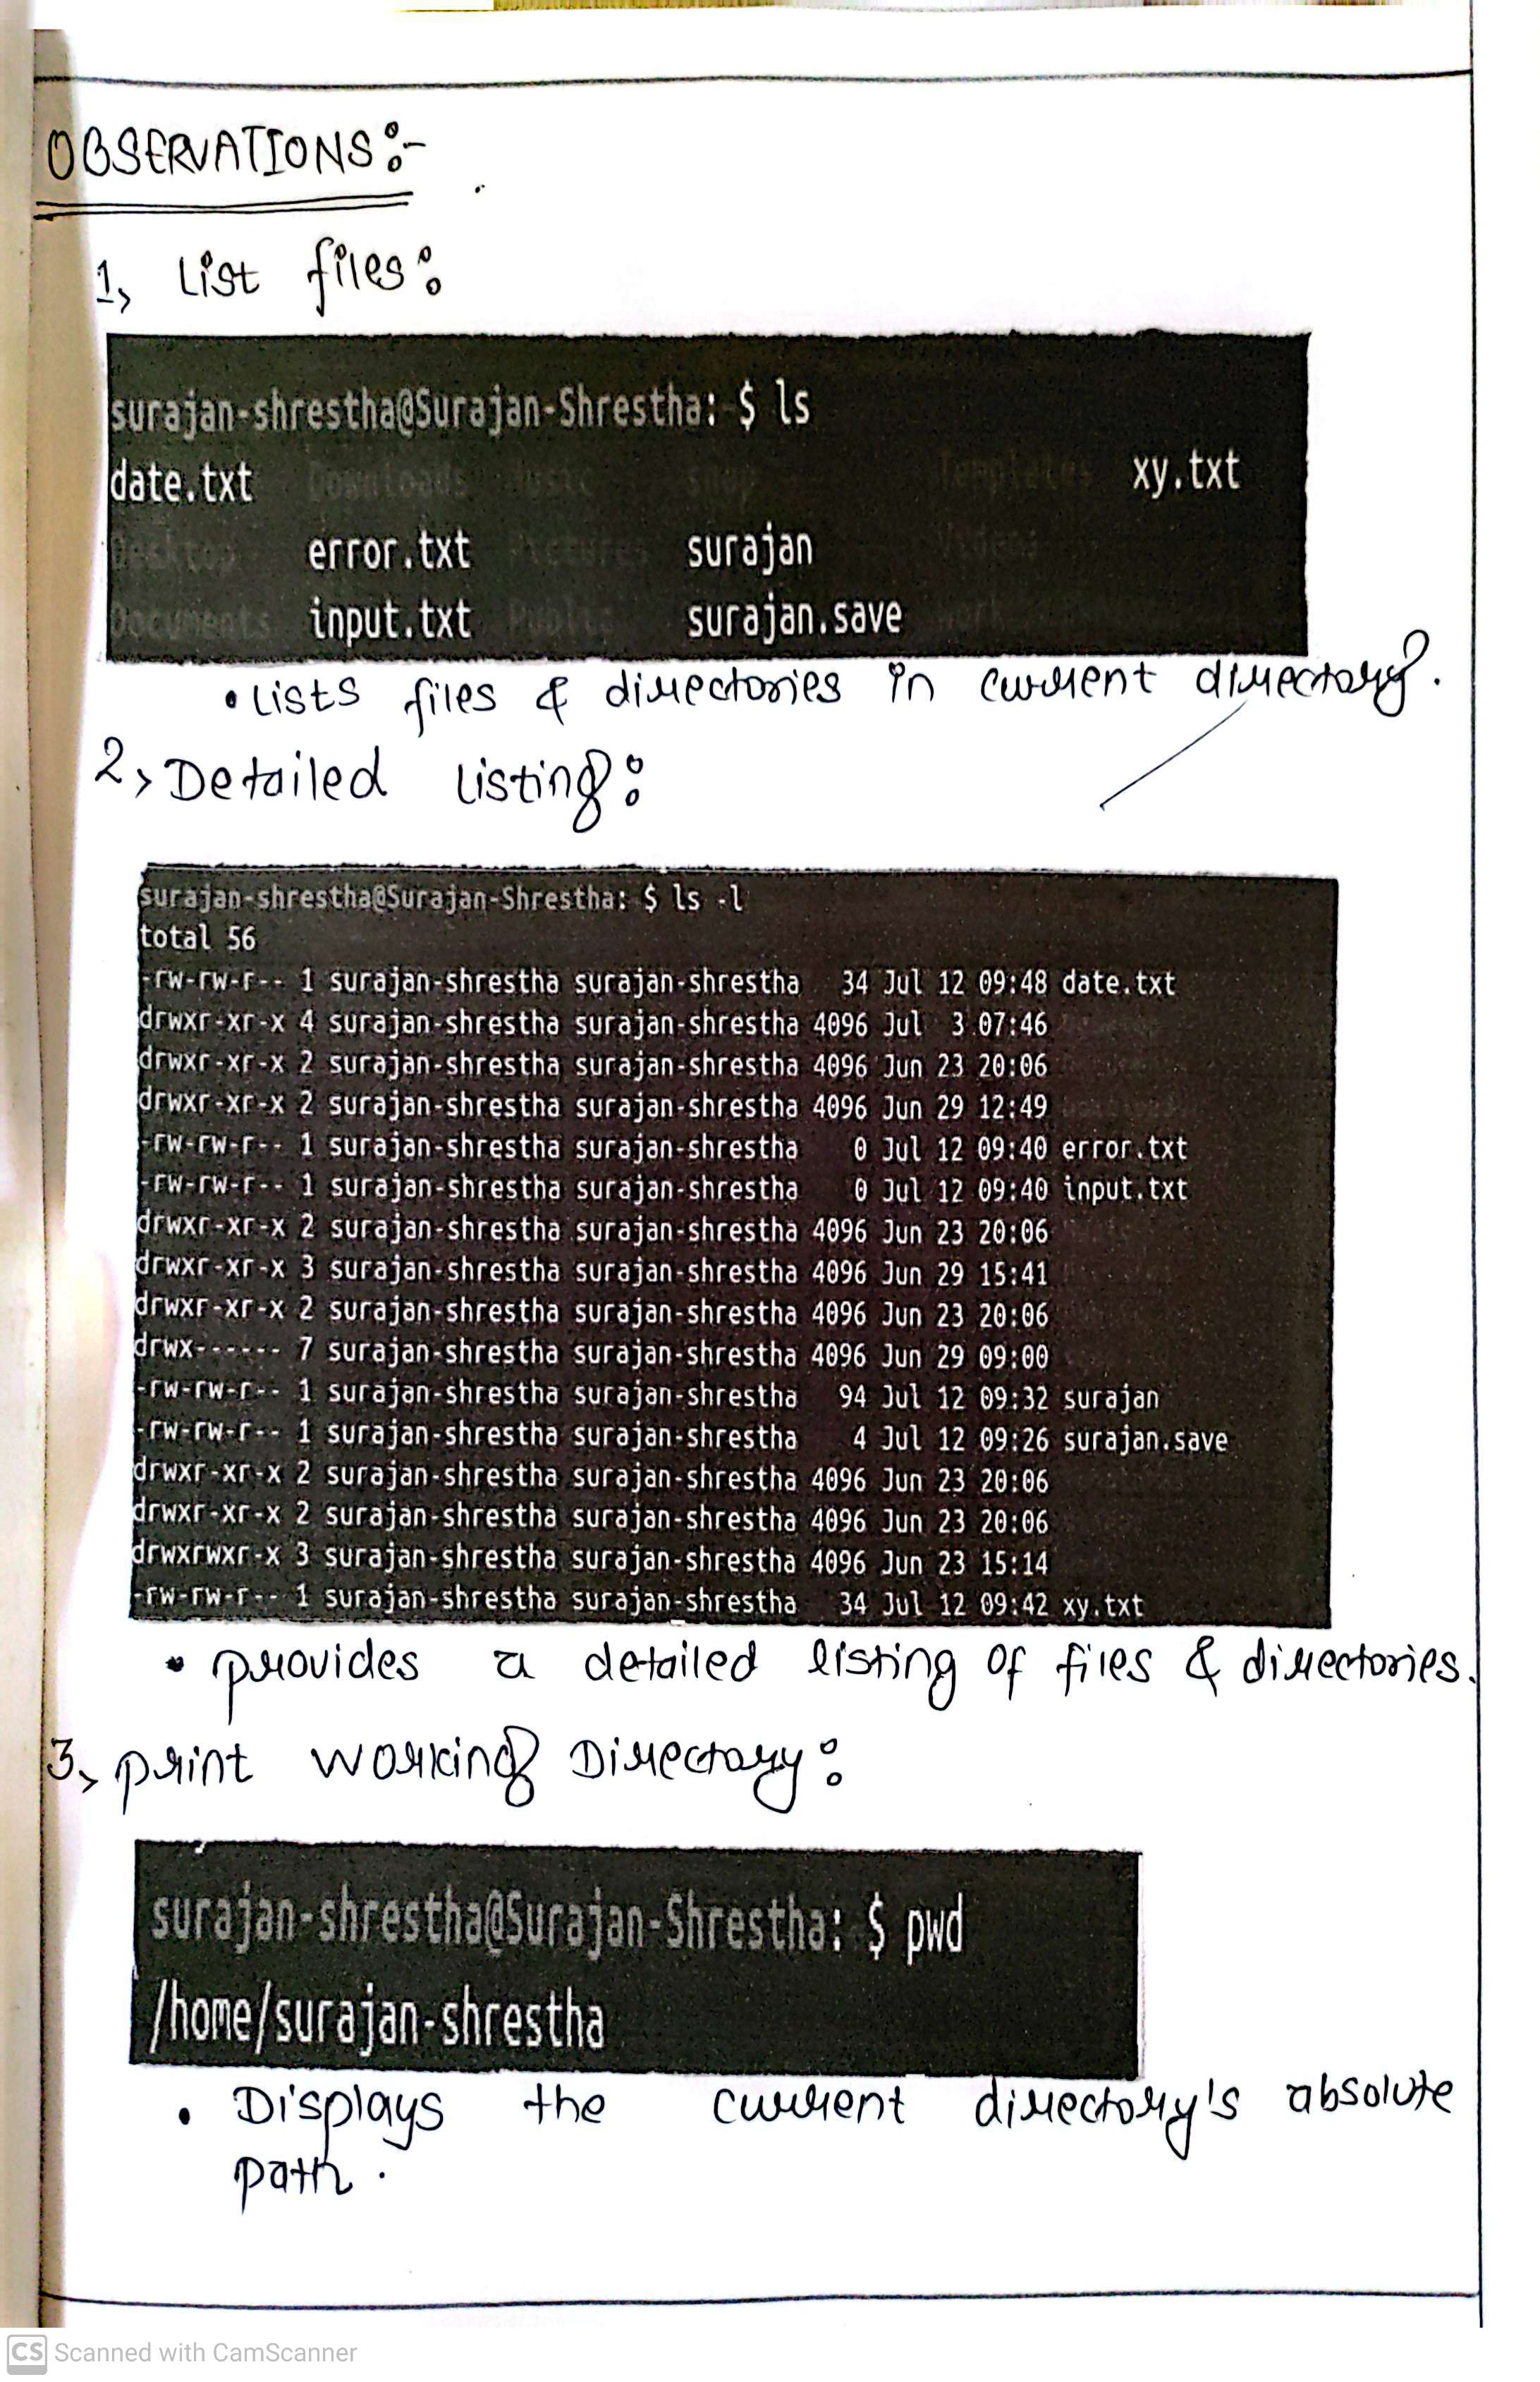 OBSERVATIONS:-
1, List files:
surajan-shrestha@Surajan-Shrestha: $ ls
date.txt Downloads Music snap Templates xy.txt
Desktop error.txt Pictures surajan Videos
Documents input.txt Public surajan.save work
• Lists files & directories in current directory.
2, Detailed listing:
surajan-shrestha@Surajan-Shrestha: $ ls -l
total 56
-rw-rw-r-- 1 surajan-shrestha surajan-shrestha 34 Jul 12 09:48 date.txt
drwxr-xr-x 4 surajan-shrestha surajan-shrestha 4096 Jul 3 07:46
drwxr-xr-x 2 surajan-shrestha surajan-shrestha 4096 Jun 23 20:06
drwxr-xr-x 2 surajan-shrestha surajan-shrestha 4096 Jun 29 12:49
-rw-rw-r-- 1 surajan-shrestha surajan-shrestha 0 Jul 12 09:40 error.txt
-rw-rw-r-- 1 surajan-shrestha surajan-shrestha 0 Jul 12 09:40 input.txt
drwxr-xr-x 2 surajan-shrestha surajan-shrestha 4096 Jun 23 20:06
drwxr-xr-x 3 surajan-shrestha surajan-shrestha 4096 Jun 29 15:41
drwxr-xr-x 2 surajan-shrestha surajan-shrestha 4096 Jun 23 20:06
drwx------ 7 surajan-shrestha surajan-shrestha 4096 Jun 29 09:00
-rw-rw-r-- 1 surajan-shrestha surajan-shrestha 94 Jul 12 09:32 surajan
-rw-rw-r-- 1 surajan-shrestha surajan-shrestha 4 Jul 12 09:26 surajan.save
drwxr-xr-x 2 surajan-shrestha surajan-shrestha 4096 Jun 23 20:06
drwxr-xr-x 2 surajan-shrestha surajan-shrestha 4096 Jun 23 20:06
drwxrwxr-x 3 surajan-shrestha surajan-shrestha 4096 Jun 23 15:14
-rw-rw-r-- 1 surajan-shrestha surajan-shrestha 34 Jul 12 09:42 xy.txt
• provides a detailed listing of files & directories.
3, print working Directory:
surajan-shrestha@Surajan-Shrestha: $ pwd
/home/surajan-shrestha
• Displays the current directory's absolute
path.
CS Scanned with CamScanner